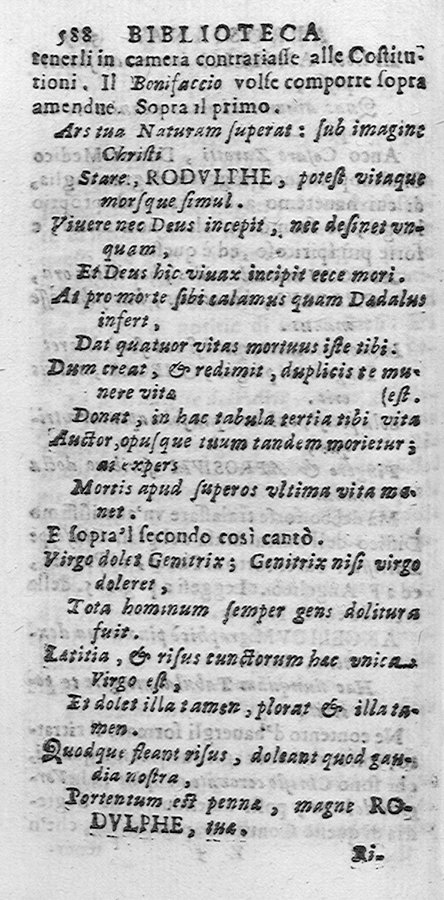 588 BIBLIOTECA
tenerli in camera contrariasse alle Costitu-
tioni. Il Bonifaccio volse comporre sopra
amendue. Sopra il primo.
Ars tua Naturam superat: sub imagine
Christi
Stare, RODVLPHE, potest vitaque
morsque simul.
Viuere nec Deus incepit, nec desinet vn-
quam,
Et Deus hic viuax incipit ecce mori.
At pro morte sibi calamus quam Dædalus
infert,
Dat quatuor vitas mortuus iste tibi.
Dum creat, & redimit, duplicis te mu-
nere vitæ (est.
Donat, in hac tabula tertia tibi vita
Auctor, opusque tuum tandem morietur;
at expers
Mortis apud superos vltima vita ma-
net.
E sopra'l secondo così cantò.
Virgo dolet Genitrix; Genitrix nisi virgo
doleret,
Tota hominum semper gens dolitura
fuit.
Lætitia, & risus cunctorum hæc vnica
Virgo est,
Et dolet illa tamen, plorat & illa ta-
men.
Quodque fleant risus, doleant quod gau-
dia nostra,
Portentum est pennæ, magne RO-
DVLPHE, tuæ.
Ri-